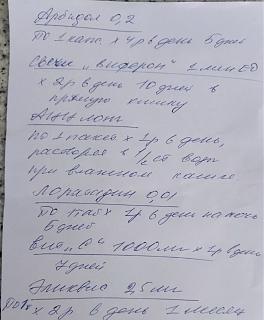 Арбидол 0,2
По 1 капс x 4 р в день 5 дней
Свечи „виферон" 1 млн ЕД
x 2 р в день 10 дней в
прямую кишку
АЦЦ лонг
по 1 пакет x 1 р в день,
растворяя в 1/2 ст воды
при влажном кашле
Лоратадин 0,01
По 1 таб x 1 р в день на ночь
5 дней
вит „С" 1000 мг x 1 р в день
7 дней
Эликвис 2,5 мг
по 1т x 2 р в день 1 месяц